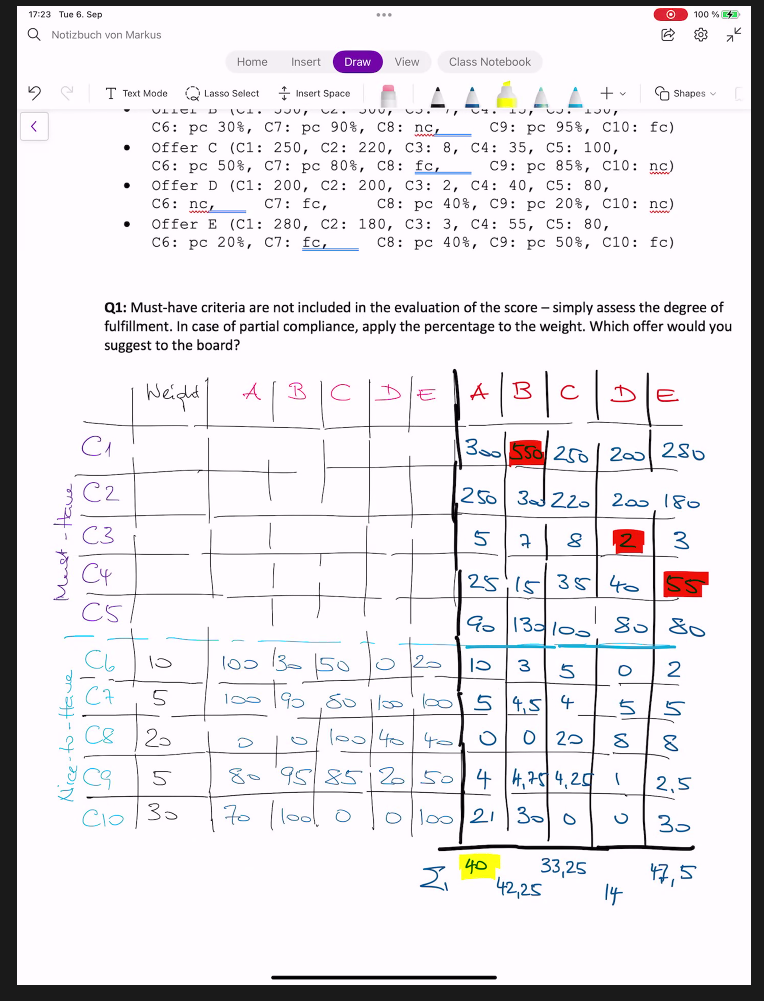 17:23 Tue 6. Sep
100 %
Notizbuch von Markus
Home Insert Draw View Class Notebook
Text Mode Lasso Select Insert Space Shapes
C6: pc 30%, C7: pc 90%, C8: nc, C9: pc 95%, C10: fc)
• Offer C (C1: 250, C2: 220, C3: 8, C4: 35, C5: 100,
C6: pc 50%, C7: pc 80%, C8: fc, C9: pc 85%, C10: nc)
• Offer D (C1: 200, C2: 200, C3: 2, C4: 40, C5: 80,
C6: nc, C7: fc, C8: pc 40%, C9: pc 20%, C10: nc)
• Offer E (C1: 280, C2: 180, C3: 3, C4: 55, C5: 80,
C6: pc 20%, C7: fc, C8: pc 40%, C9: pc 50%, C10: fc)
Q1: Must-have criteria are not included in the evaluation of the score – simply assess the degree of
fulfillment. In case of partial compliance, apply the percentage to the weight. Which offer would you
suggest to the board?
Weight A B C D E A B C D E
Must-Have
C1 300 550 250 200 280
C2 250 300 220 200 180
C3 5 7 8 2 3
C4 25 15 35 40 55
C5 90 130 100 80 80
Nice-to-Have
C6 10 100 30 50 0 20 10 3 5 0 2
C7 5 100 90 80 100 100 5 4,5 4 5 5
C8 20 0 0 100 40 40 0 0 20 8 8
C9 5 80 95 85 20 50 4 4,75 4,25 1 2,5
C10 30 70 100 0 0 100 21 30 0 0 30
Σ 40 42,25 33,25 14 47,5